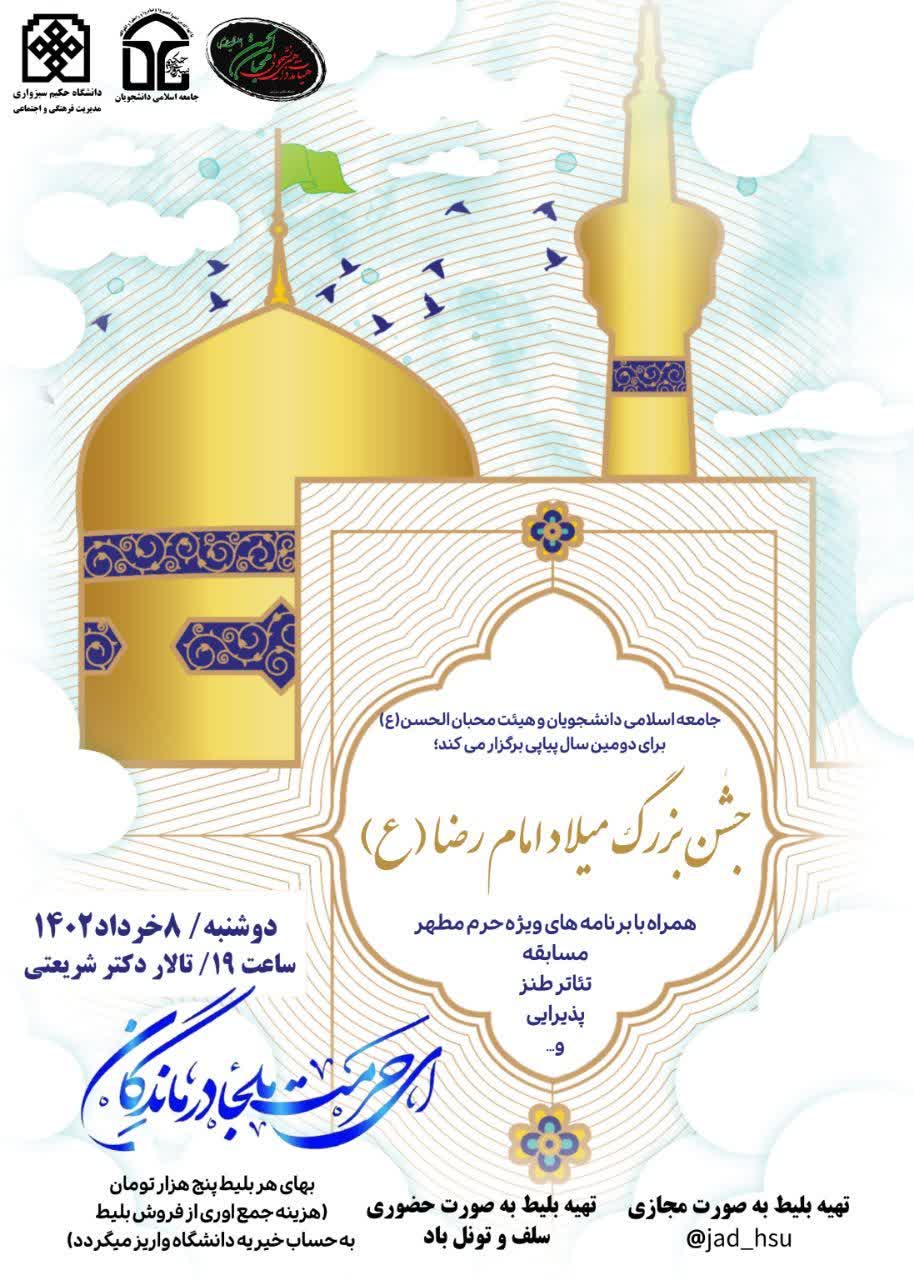 دانشگاه حکیم سبزواری
مدیریت فرهنگی و اجتماعی
جامعه اسلامی دانشجویان
جامعه اسلامی دانشجویان و هیئت محبان الحسن(ع)
برای دومین سال پیاپی برگزار می کند؛
جشن بزرگ میلاد امام رضا (ع)
همراه با برنامه های ویژه حرم مطهر
مسابقه
تئاتر طنز
پذیرایی
و...
دوشنبه/ ۸خرداد۱۴۰۲
ساعت ۱۹/ تالار دکتر شریعتی
ای حرمت ملجا درماندگان
بهای هر بلیط پنج هزار تومان
(هزینه جمع اوری از فروش بلیط
به حساب خیریه دانشگاه واریز میگردد)
تهیه بلیط به صورت حضوری
سلف و تونل باد
تهیه بلیط به صورت مجازی
@jad_hsu